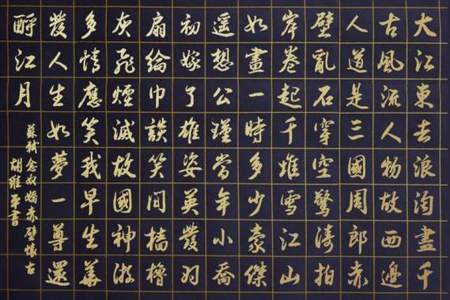 大江東去浪淘盡千
古風流人物故西邊
人道是三國周郎赤
壁亂石穿空驚濤拍
岸卷起千堆雪江山
如畫一時多少豪傑
遙想公瑾當年小喬
初嫁了雄姿英發羽
扇綸巾談笑間檣櫓
灰飛煙滅故國神游
多情應笑我早生華
發人生如夢一尊還
酹江月
蘇軾念奴嬌赤壁懷古
胡平書